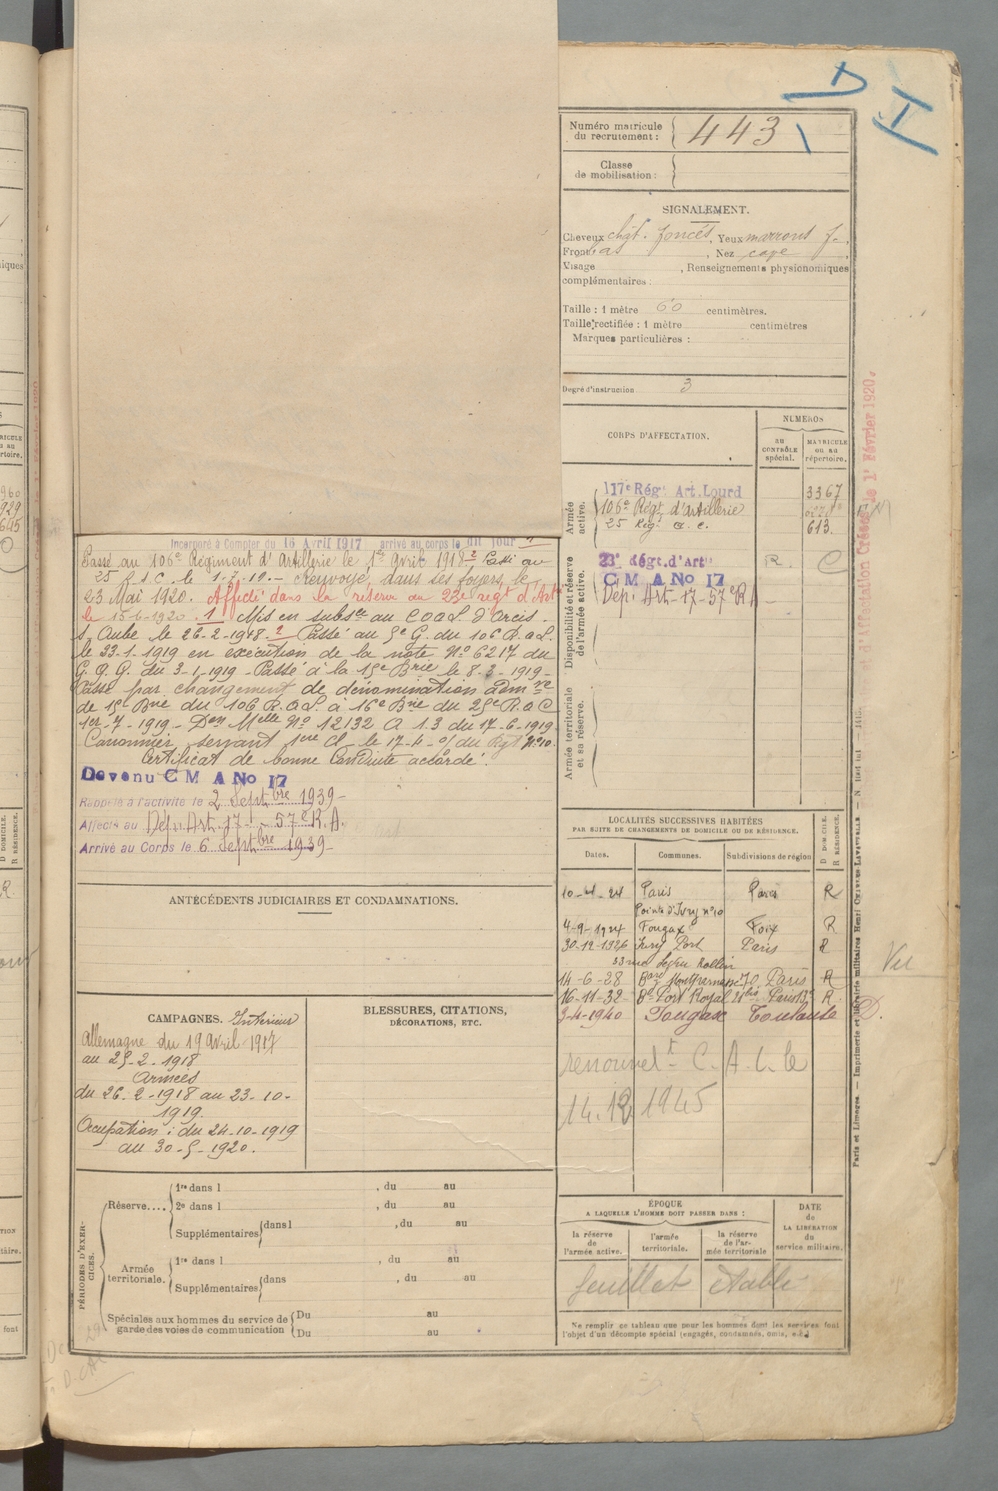 D
I
Numéro matricule du recrutement : 443
Classe de mobilisation :
SIGNALEMENT.
Cheveux chât. foncés, Yeux marrons f.
Front, Nez cave
Visage, Renseignements physionomiques
complémentaires :
Taille : 1 mètre 60 centimètres.
Taille rectifiée : 1 mètre centimètres
Marques particulières :
Degré d'instruction 3
CORPS D'AFFECTATION.
NUMÉROS
AU CONTRÔLE spécial.
MATRICULE ou au répertoire.
Armée active.
117e Régt Art. Lourd 3367
106e Régt d'artillerie
25 Rég. a. c. 613
Disponibilité et réserve de l'armée active.
23e Régt. d'art. R. C
C M A No 17
Dép. Art. 17 - 57e R A
Armée territoriale et sa réserve.
d'Affectation Créées le 1er Février 1920.
Incorporé à Compter du 16 Avril 1917 arrivé au corps le dit jour
Passé au 106e Régiment d'Artillerie le 1er Avril 1918 2 Passé au
25 R.A.C. le 1-7-19. - Renvoyé dans ses foyers le
23 Mai 1920. Affecté dans la réserve au 23e régt d'Art
le 15-6-1920. 1 Mis en subsce au C.O.A.L. d'Arcis
s. Aube le 26-2-1918. 2 Passé au 5e G. du 106 R.A.L.
le 23-1-1919 en exécution de la note No 6217 du
G.Q.G. du 3-1-1919 - Passé à la 15e Brie le 8-3-1919 -
Passé par changement de dénomination Admve
de 15e Brie du 106 R.A.L. à 16e Brie du 25e R.A.C
1er-7-1919 - Don Melle No 12132 A 1.3 du 17-6-1919
Canonnier servant 1ere Cl le 17-4- o/ du Rgt No 10.
Certificat de bonne Conduite accordé.
Devenu C M A No 17
Rappelé à l'activité le 2 Septbre 1939 -
Affecté au Dép. Art. 17 - 57e R.A.
Arrivé au Corps le 6 Septbre 1939 -
ANTÉCÉDENTS JUDICIAIRES ET CONDAMNATIONS.
CAMPAGNES. Intérieur
Allemagne du 19 Avril 1917
au 25-2-1918
Armées
du 26-2-1918 au 23-10-
1919.
Occupation : du 24-10-1919
au 30-5-1920.
BLESSURES, CITATIONS,
DÉCORATIONS, ETC.
LOCALITÉS SUCCESSIVES HABITÉES
PAR SUITE DE CHANGEMENTS DE DOMICILE OU DE RÉSIDENCE.
D DOMICILE. R RÉSIDENCE.
Dates. Communes. Subdivisions de région
10-4-24 Paris Paris R
Pointe d'Ivry no 10
4-9-1924 Fougax Foix R
30-12-1926 Ivry Port Paris R
33 rue Ledru Rollin
14-6-28 Bard Montparnasse 70 Paris R
16-11-32 Bd Port Royal 28 bis Paris 13e R
3-4-1940 Fougax Toulouse D.
Vu
renouvelt C. A. L. le
14.12 1945
PÉRIODES D'EXERCICES.
Réserve....
1re dans l , du au
2e dans l , du au
Supplémentaires dans l , du au
Armée territoriale.
1re dans l , du au
Supplémentaires dans , du au
Spéciales aux hommes du service de garde des voies de communication
Du au
Du au
ÉPOQUE
A LAQUELLE L'HOMME DOIT PASSER DANS :
la réserve de l'armée active.
l'armée territoriale.
la réserve de l'armée territoriale
DATE de LA LIBÉRATION du service militaire.
feuillet établi
Ne remplir ce tableau que pour les hommes dont les services font
l'objet d'un décompte spécial (engagés, condamnés, omis, etc.)
Paris et Limoges. — Imprimerie et librairie militaires Henri CHARLES-LAVAUZELLE.